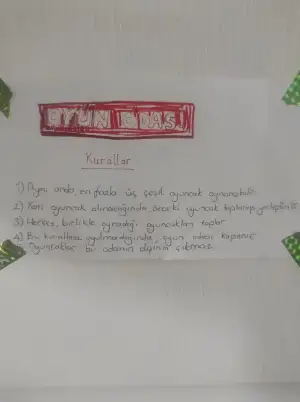 OYUN ODASI
Kurallar
1) Aynı anda, en fazla üç çeşit oyuncak oynanabilir.
2) Yeni oyuncak alınacağında, önceki oyuncak toplanıp, yerleştirilir
3) Herkes, birlikte oynadığı oyuncakları toplar
4) Bu kurallara uyulmadığında, oyun odası kapanır
Oyuncaklar bir odanın dışına çıkmaz.